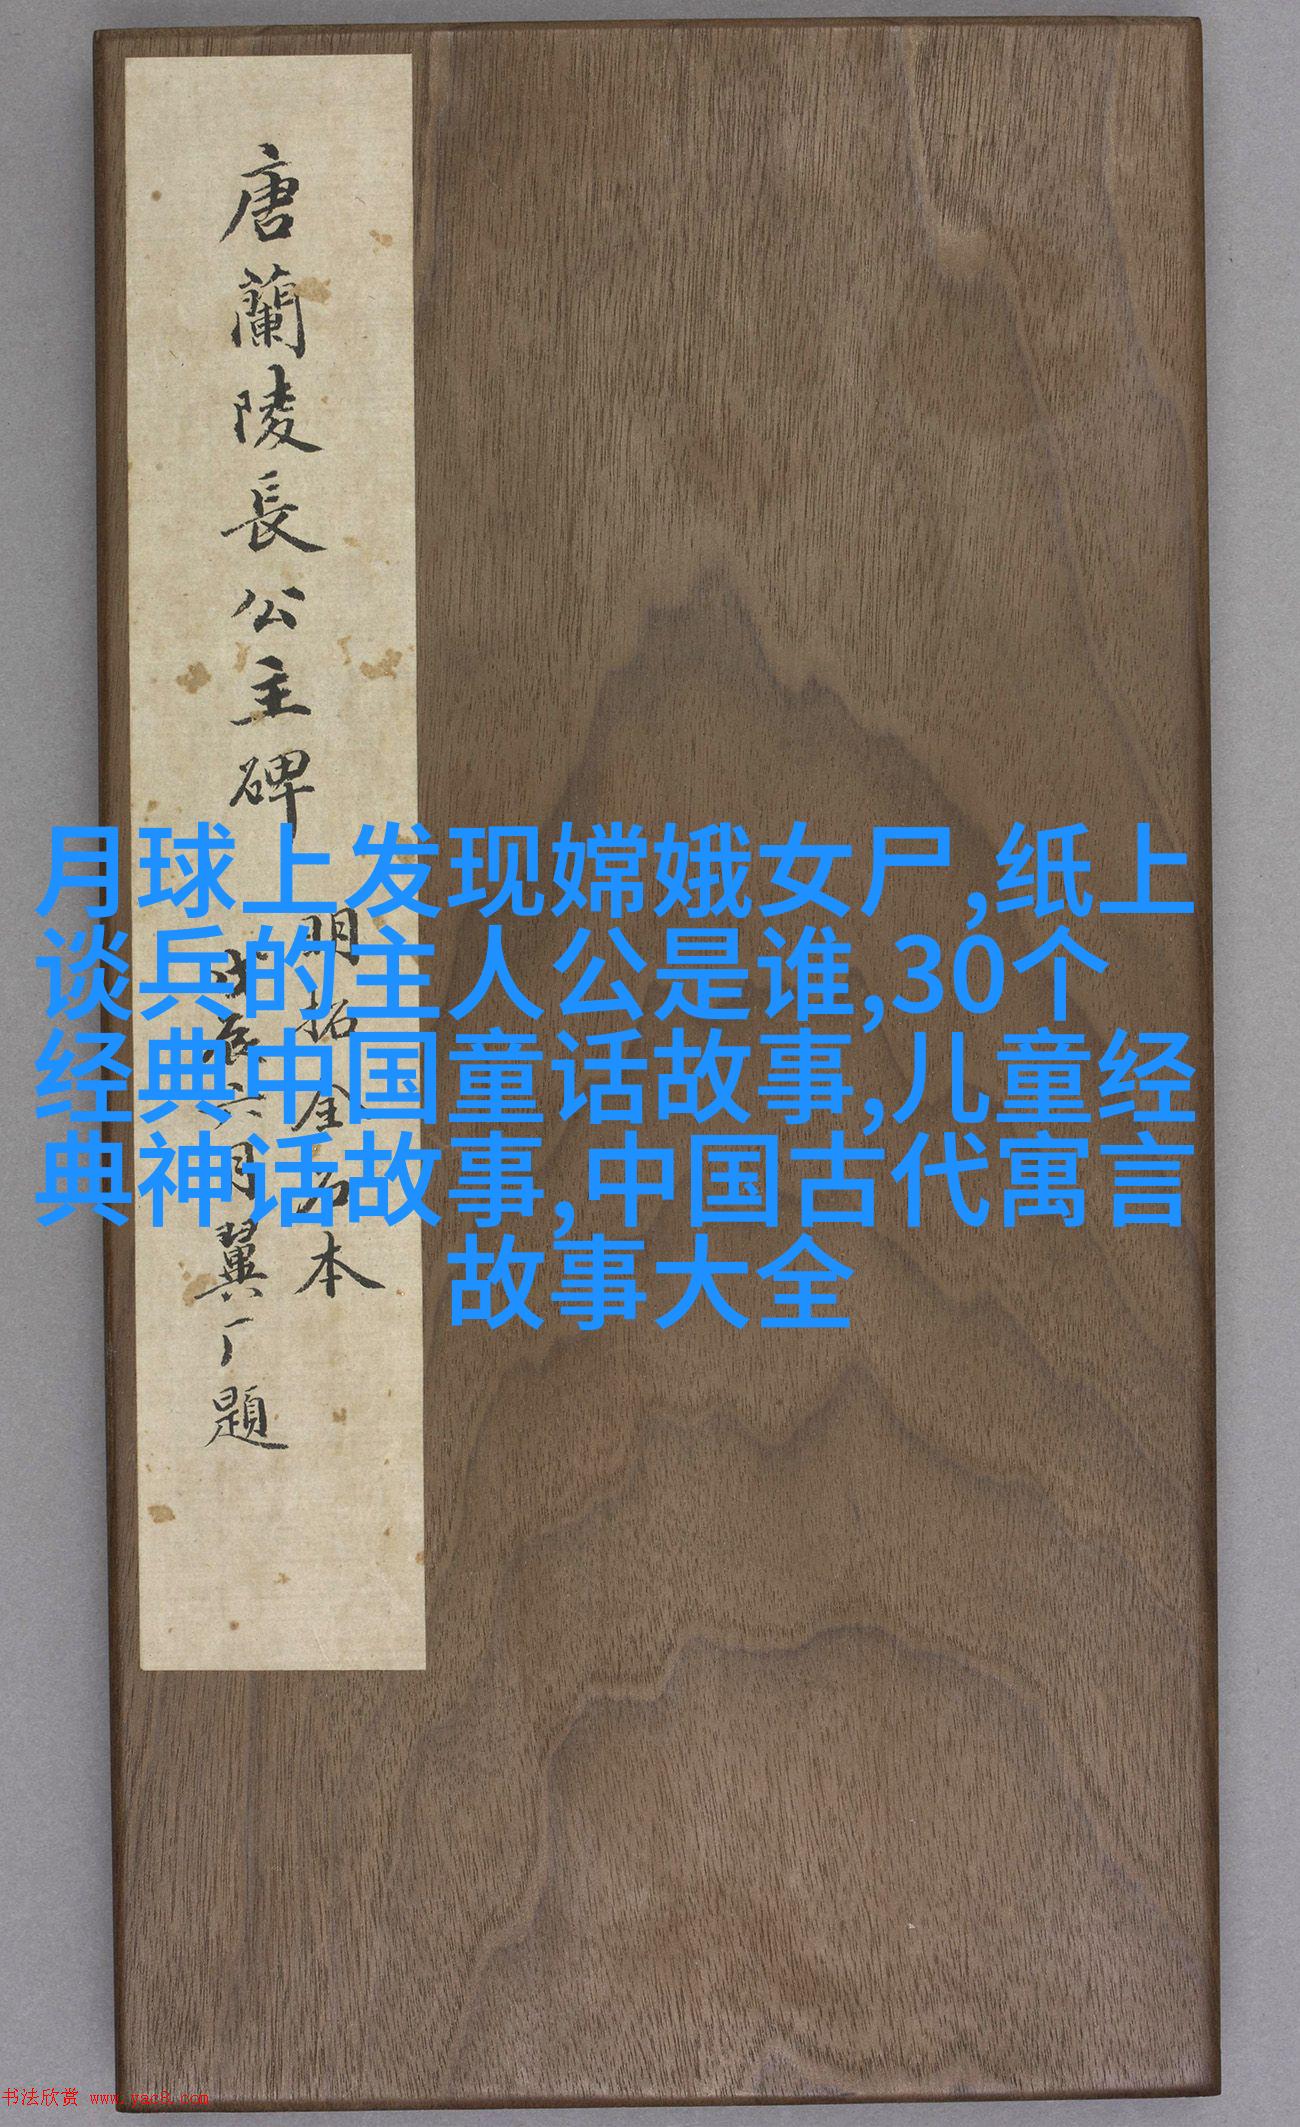 唐蘭陵長公主碑
明拓全石本
戊辰六月翼厂題
月球上发现嫦娥女尸,纸上
谈兵的主人公是谁,30个
经典中国童话故事,儿童经
典神话故事,中国古代寓言
故事大全
书法欣赏 www.yac8.com